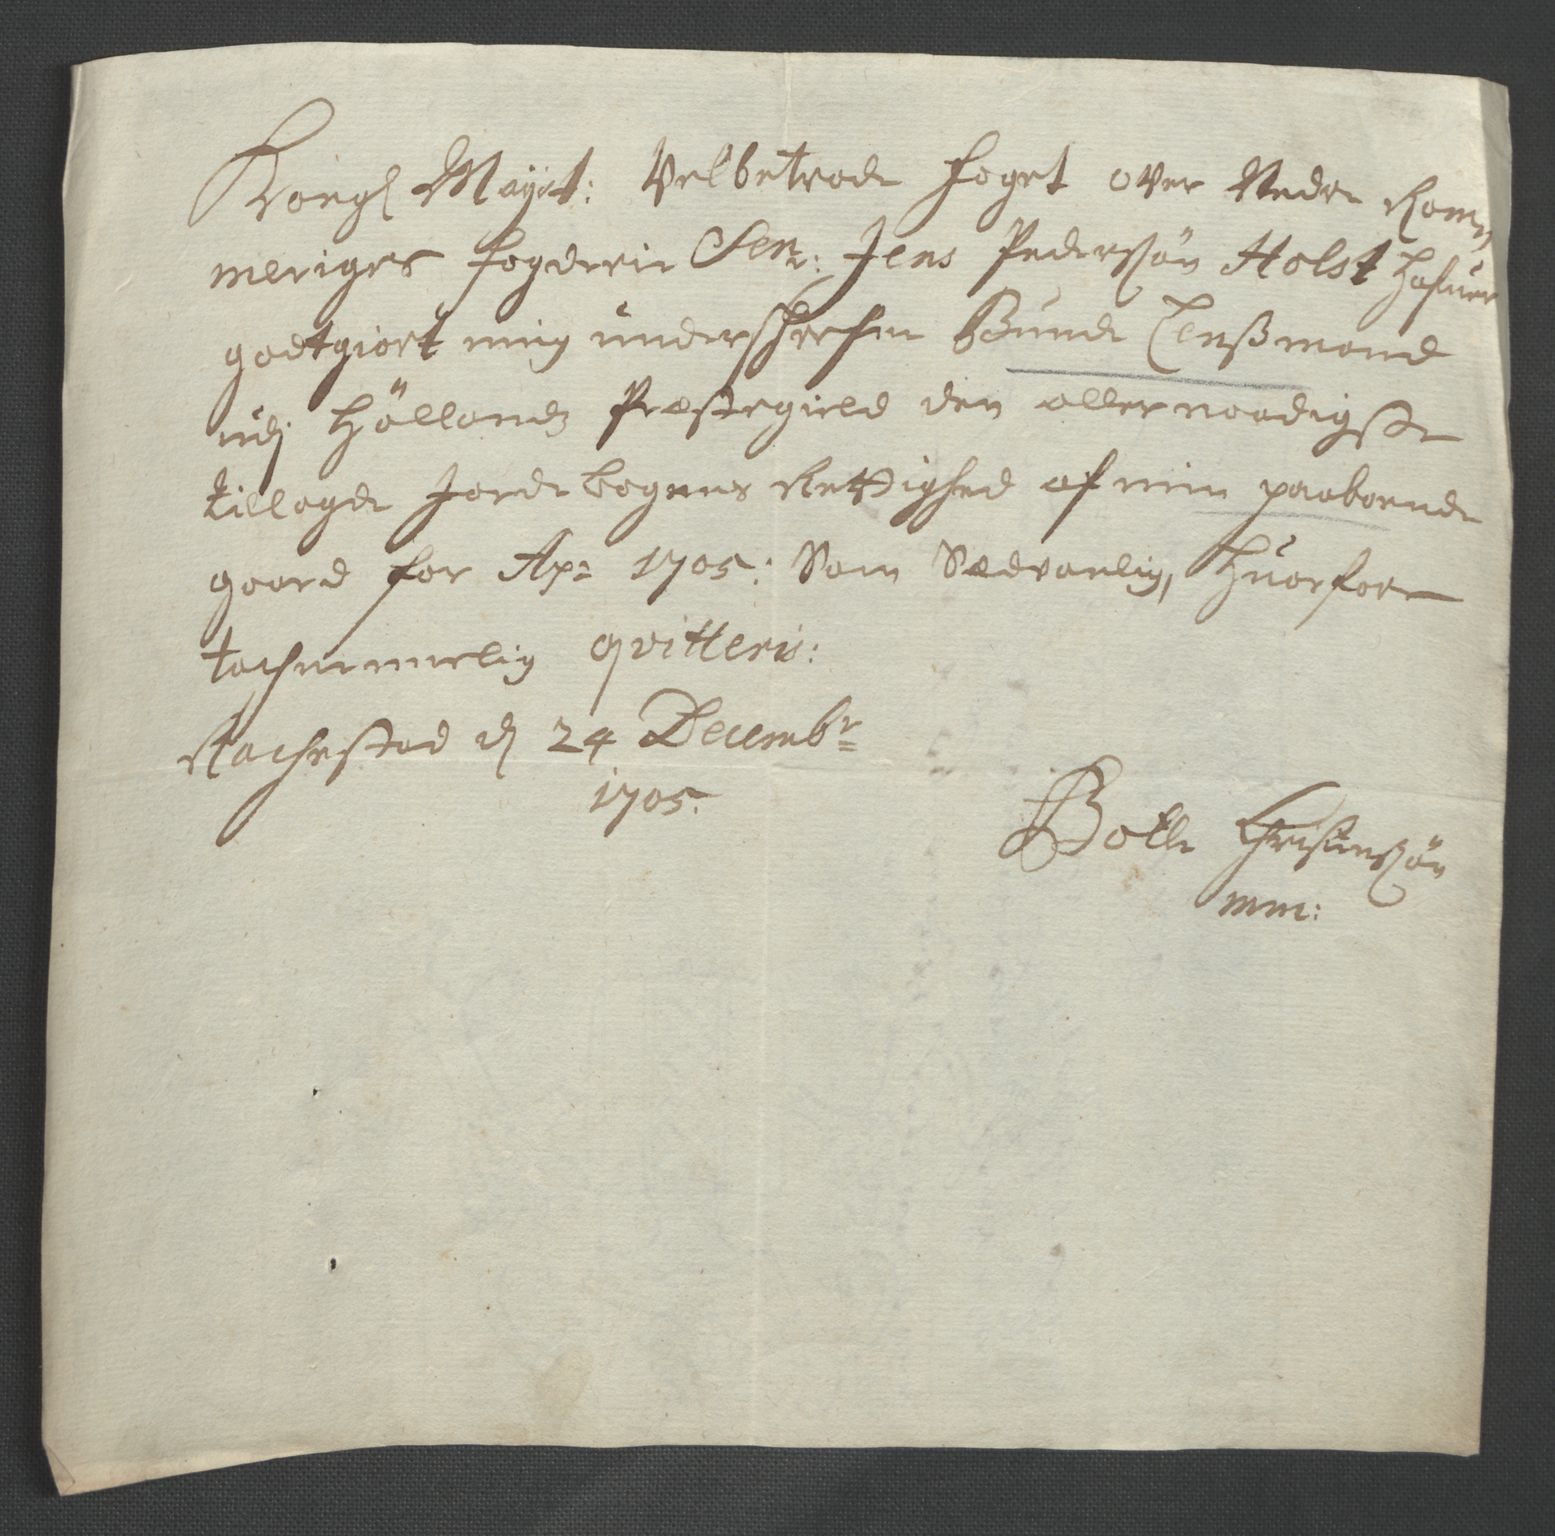 Kongl Mayst: Velbetrode Foget over Nedre Rom-
meriges fogderie Senr: Jens Pedersøn Holst Hafuer
godtgiort mig underschrefne Bunde Lensmand
udj Hölands Præstegield den allernaadigste
tillagde Jordebogens Rettighed af min paaboende
gaard for Ao: 1705: Som Sædvanlig, Huorfore
tachnemmelig qvitteris:
Rachestad d 24 Decembr
1705.
Botle Christensøn
mm: